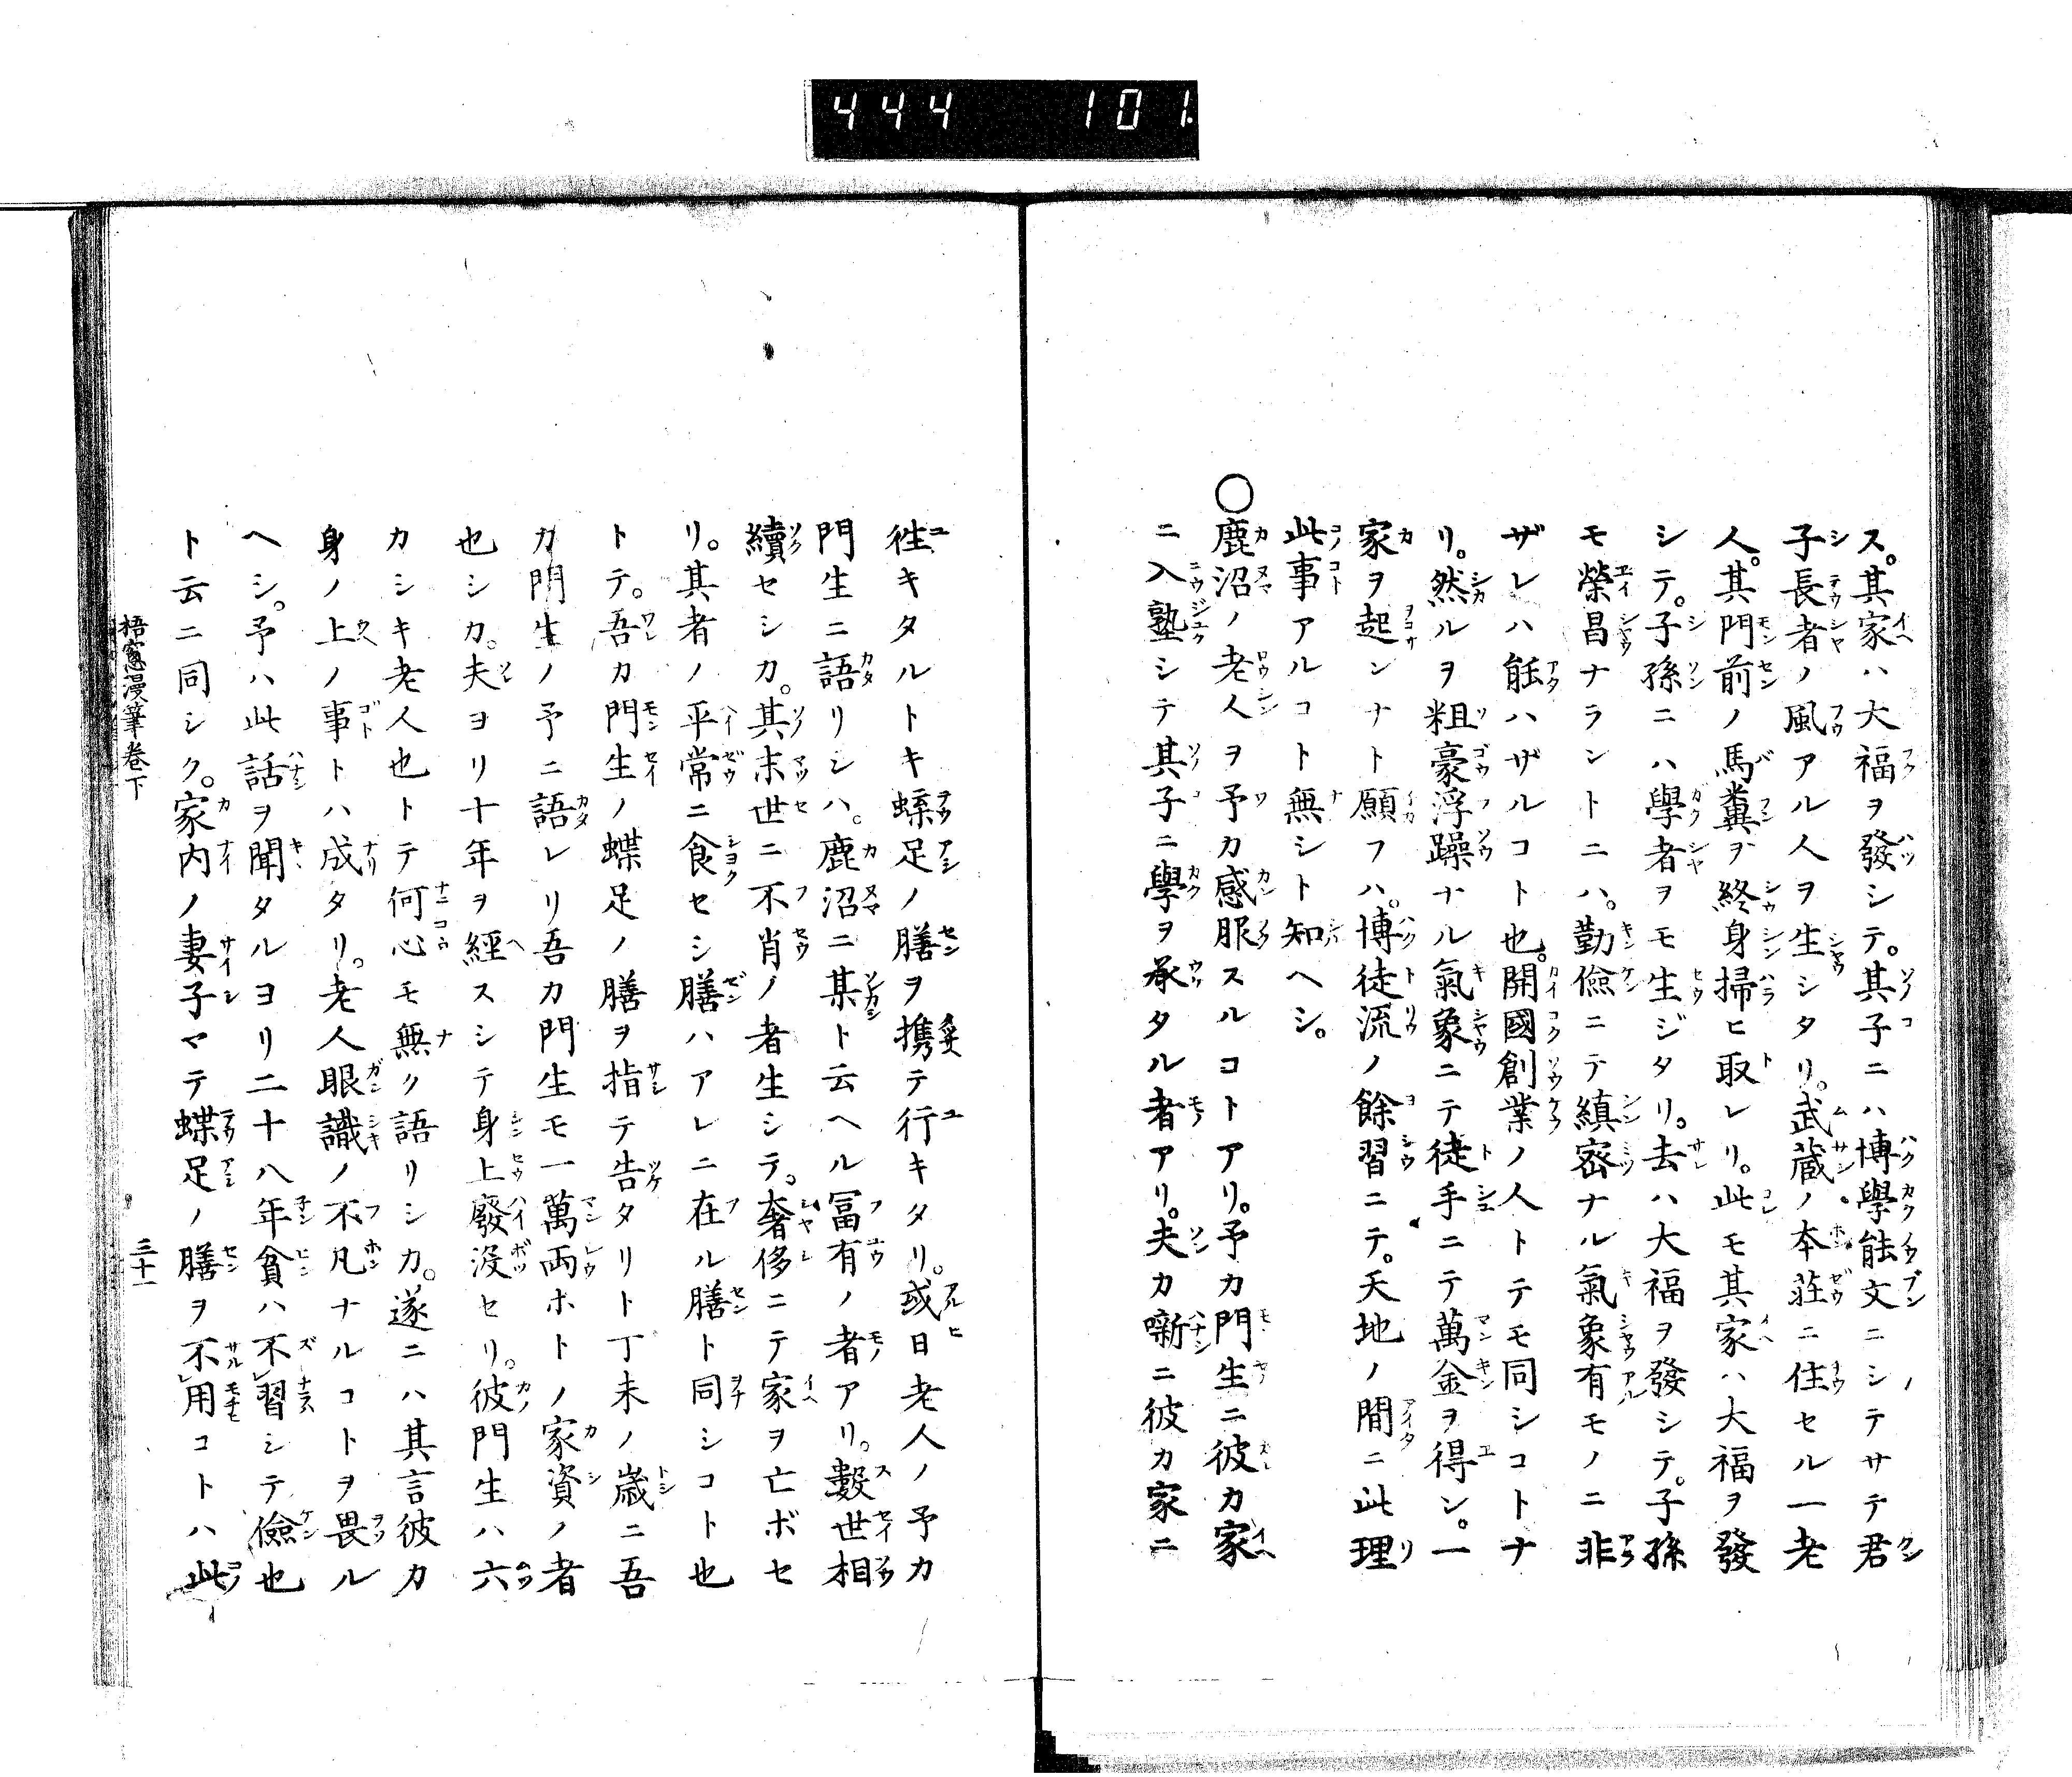 444 101.
ス。其家ハ大福ヲ發シテ。其子ニハ博學能文ニシテサテ君
子長者ノ風アル人ヲ生シタリ。武蔵ノ本莊ニ住セル一老
人。其門前ノ馬糞ヲ終身掃ヒ取レリ。此モ其家ハ大福ヲ發
シテ。子孫ニハ學者ヲモ生ジタリ。去ハ大福ヲ發シテ。子孫
モ榮昌ナラントニハ。勤儉ニテ縝密ナル氣象有モノニ非
ザレハ能ハザルコト也。開國創業ノ人トテモ同シコトナ
リ。然ルヲ粗豪浮躁ナル氣象ニテ徒手ニテ萬金ヲ得ン。一
家ヲ起ンナト願フハ。博徒流ノ餘習ニテ。天地ノ間ニ此理
此事アルコト無シト知ヘシ。
○鹿沼ノ老人ヲ予カ感服スルコトアリ。予カ門生ニ彼カ家
ニ入塾シテ其子ニ學ヲ承タル者アリ。夫カ噺ニ彼カ家ニ
徃キタルトキ蝶足ノ膳ヲ携テ行キタリ。或日老人ノ予カ
門生ニ語リシハ。鹿沼ニ某ト云ヘル冨有ノ者アリ。數世相
續セシカ。其末世ニ不肖ノ者生シテ。奢侈ニテ家ヲ亡ボセ
リ。其者ノ平常ニ食セシ膳ハアレニ在ル膳ト同シコト也
トテ。吾カ門生ノ蝶足ノ膳ヲ指テ告タリト丁未ノ歳ニ吾
カ門生ノ予ニ語レリ吾カ門生モ一萬両ホトノ家資ノ者
也シカ。夫ヨリ十年ヲ經スシテ身上廢没セリ。彼門生ハ六
カシキ老人也トテ何心モ無ク語リシカ。遂ニハ其言彼カ
身ノ上ノ事トハ成タリ。老人眼識ノ不凡ナルコトヲ畏ル
ヘシ。予ハ此話ヲ聞タルヨリ二十八年貧ハ不習シテ儉也
ト云ニ同シク。家内ノ妻子マテ蝶足ノ膳ヲ不用コトハ此
梧窓漫筆卷下 三十一